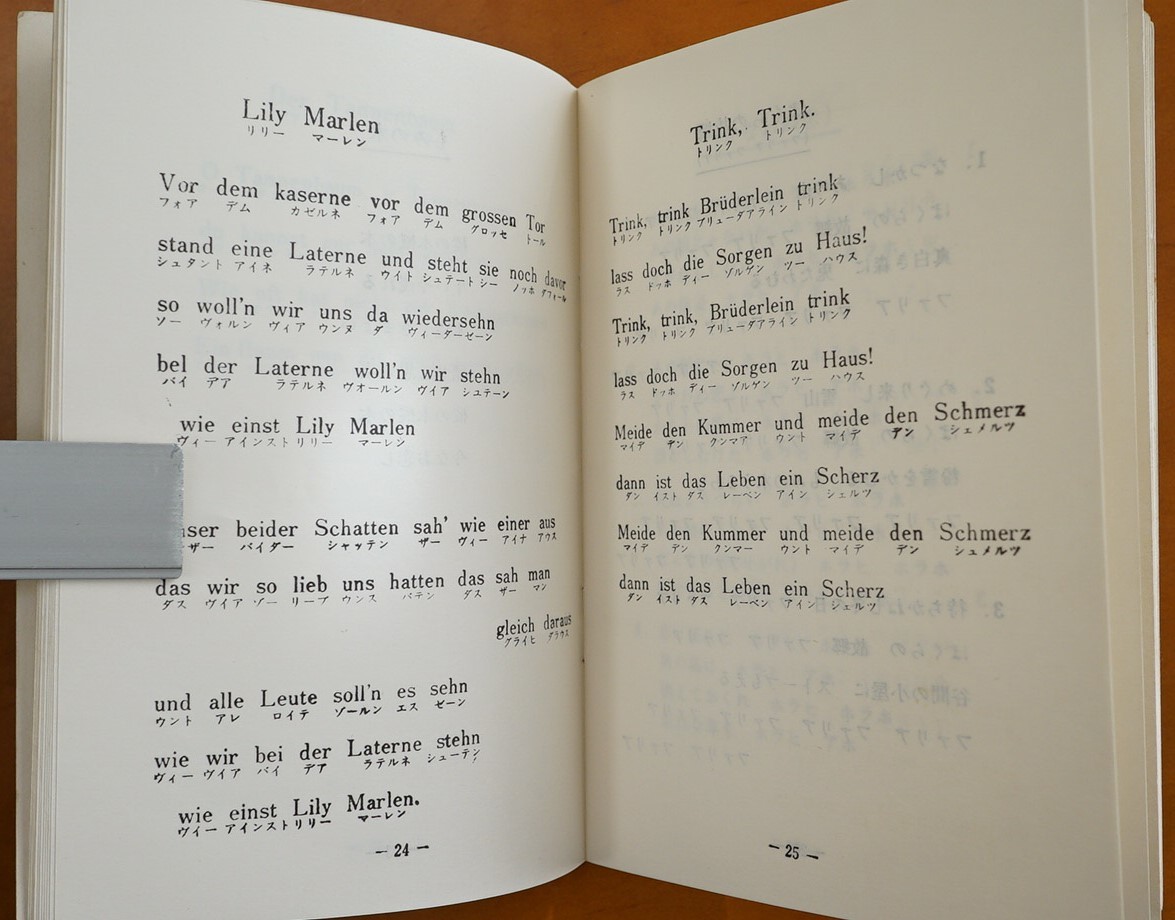 Lily Marlen
リリー マーレン
Vor dem kaserne vor dem grossen Tor
フォア デム カゼルネ フォア デム グロッセ トール
stand eine Laterne und steht sie noch davor
シュタント アイネ ラテルネ ウイト シュテート シー ノッホ ダフォール
so woll'n wir uns da wiedersehn
ソー ヴォルン ヴィア ウンヌ ダ ヴィーダーゼーン
bel der Laterne woll'n wir stehn
バイ デア ラテルネ ヴオールン ヴイア シュテーン
wie einst Lily Marlen
ヴィー アインスト リリー マーレン
beider Schatten sah' wie einer aus
ザー バイダー シャッテン ザー ヴィー アイナ アウス
das wir so lieb uns hatten das sah man
ダス ヴイア ゾー リープ ウンス ハテン ダス ザー マン
gleich daraus
グライヒ ダラウス
und alle Leute soll'n es sehn
ウント アレ ロイテ ゾールン エス ゼーン
wie wir bei der Laterne stehn
ヴィー ヴイア バイ デア ラテルネ シューテン
wie einst Lily Marlen.
ヴイー アインスト リリー マーレン
— 24 —
Trink, Trink.
トリンク トリンク
Trink, trink Brüderlein trink
トリンク トリンク ブリューダアライン トリンク
lass doch die Sorgen zu Haus!
ラス ドッホ ディー ゾルゲン ツー ハウス
Trink, trink, Brüderlein trink
トリンク トリンク ブリューダアライン トリンク
lass doch die Sorgen zu Haus!
ラス ドッホ ディー ゾルゲン ツー ハウス
Meide den Kummer und meide den Schmerz
マイデ デン クンマア ウント マイデ デン シェメルツ
dann ist das Leben ein Scherz
ダン イスト ダス レーベン アイン シェルツ
Meide den Kummer und meide den Schmerz
マイデ デン クンマー ウント マイデ デン シュメルツ
dann ist das Leben ein Scherz
ダン イスト ダス レーベン アイン シェルツ
— 25 —